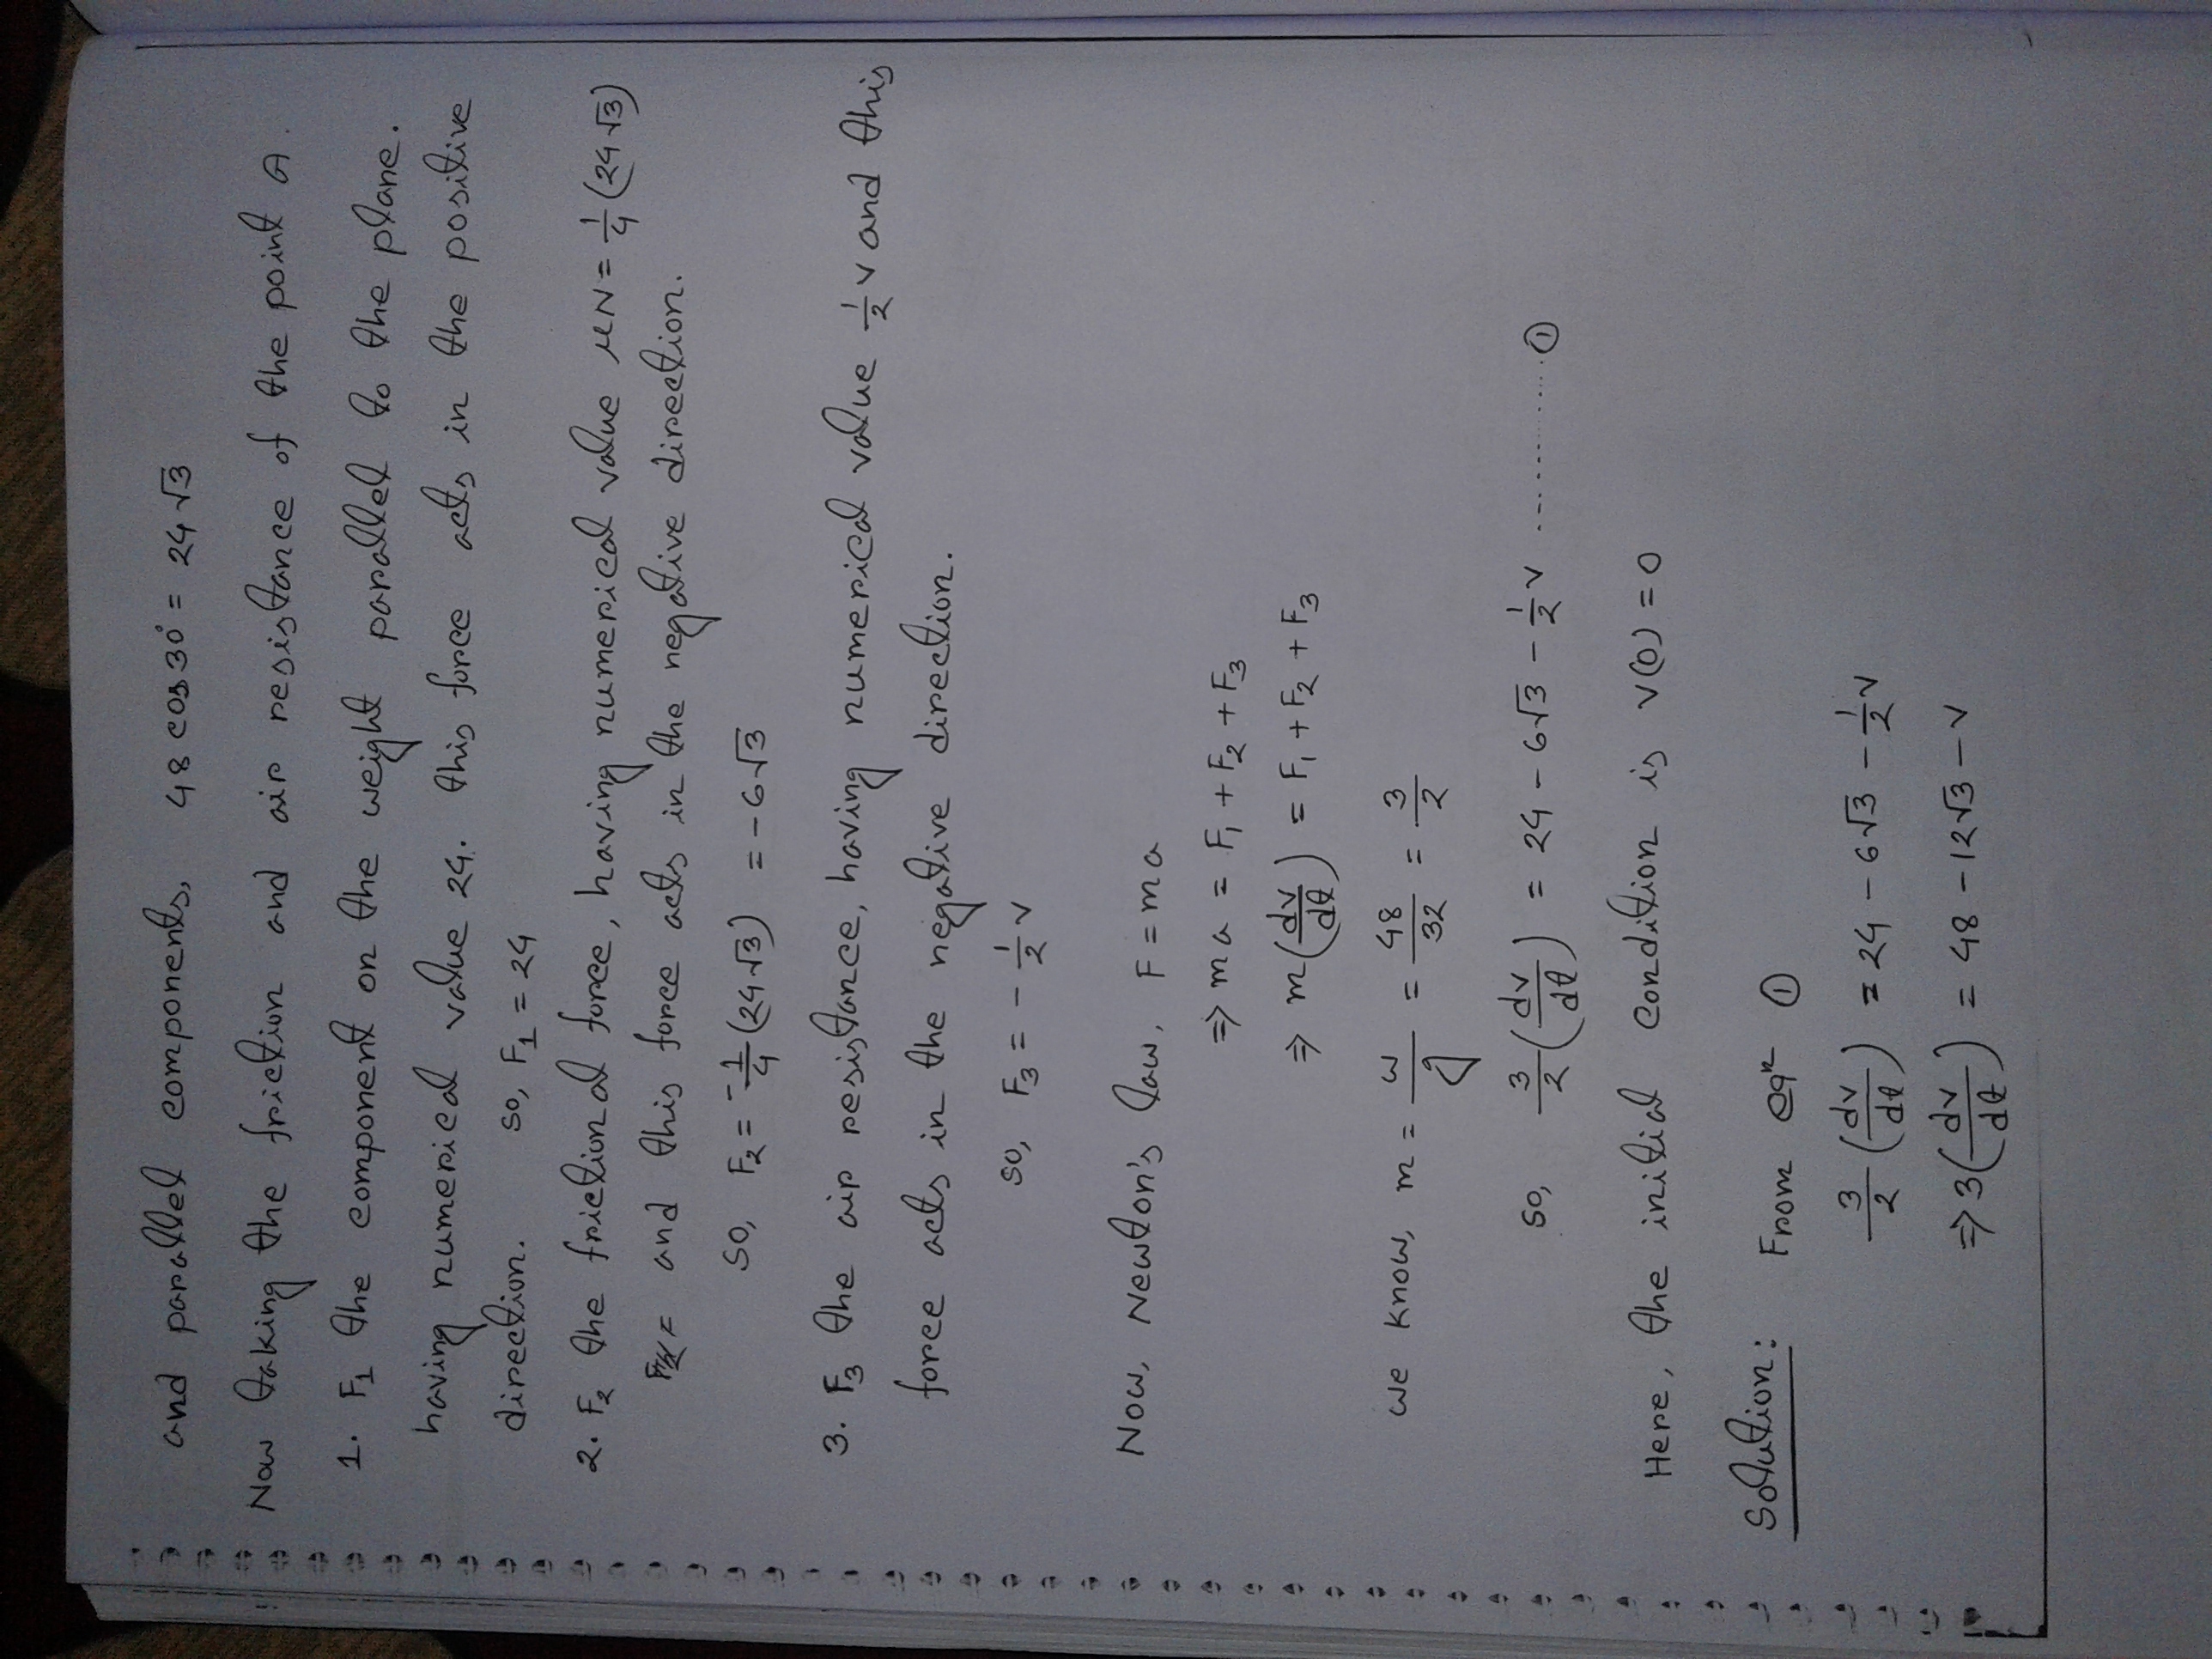 and parallel components, 48 cos 30° = 24√3
Now taking the friction and air resistance of the point A.
1. F₁ the component on the weight parallel to the plane.
having numerical value 24. this force acts in the positive
direction. so, F₁ = 24
2. F₂ the frictional force, having numerical value μN = 1/4 (24√3)
and this force acts in the negative direction.
so, F₂ = -1/4 (24√3) = -6√3
3. F₃ the air resistance, having numerical value 1/2 v and this
force acts in the negative direction.
so, F₃ = - 1/2 v
Now, Newton's law, F = ma
⇒ ma = F₁ + F₂ + F₃
⇒ m(dv/dt) = F₁ + F₂ + F₃
we know, m = w/g = 48/32 = 3/2
so, 3/2 (dv/dt) = 24 - 6√3 - 1/2 v ............ ①
Here, the initial condition is v(0) = 0
Solution: From eqⁿ ①
3/2 (dv/dt) = 24 - 6√3 - 1/2 v
⇒ 3(dv/dt) = 48 - 12√3 - v